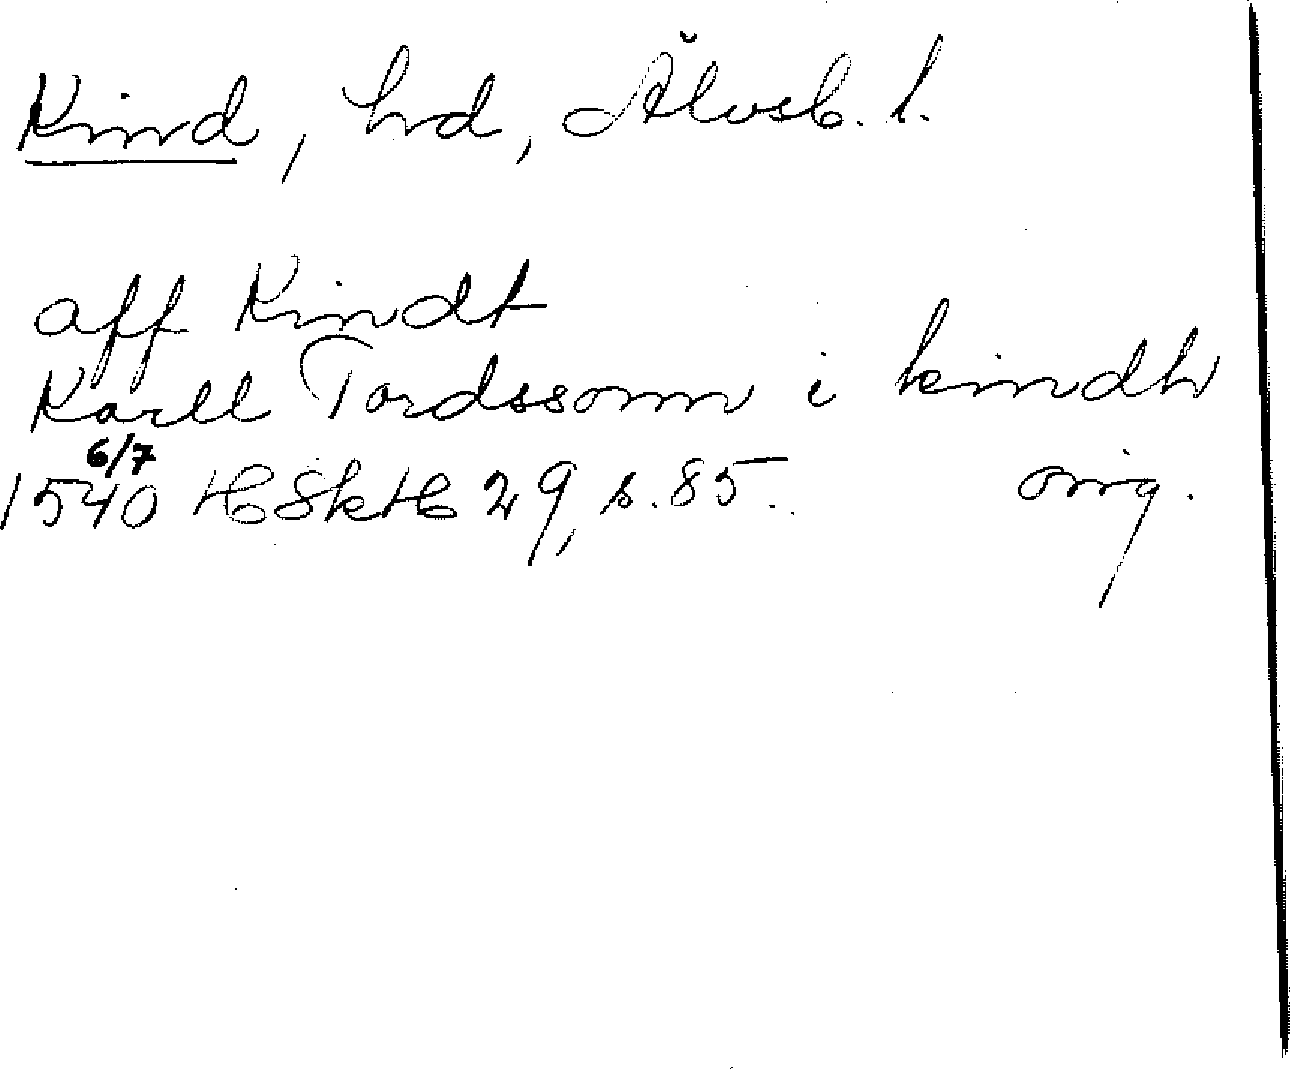 Kind, hrd, Älvsb. l.
aff Kindt
Karll Tordssonn i kindh
6/7
1540 HSkH 29, s. 85. orig.